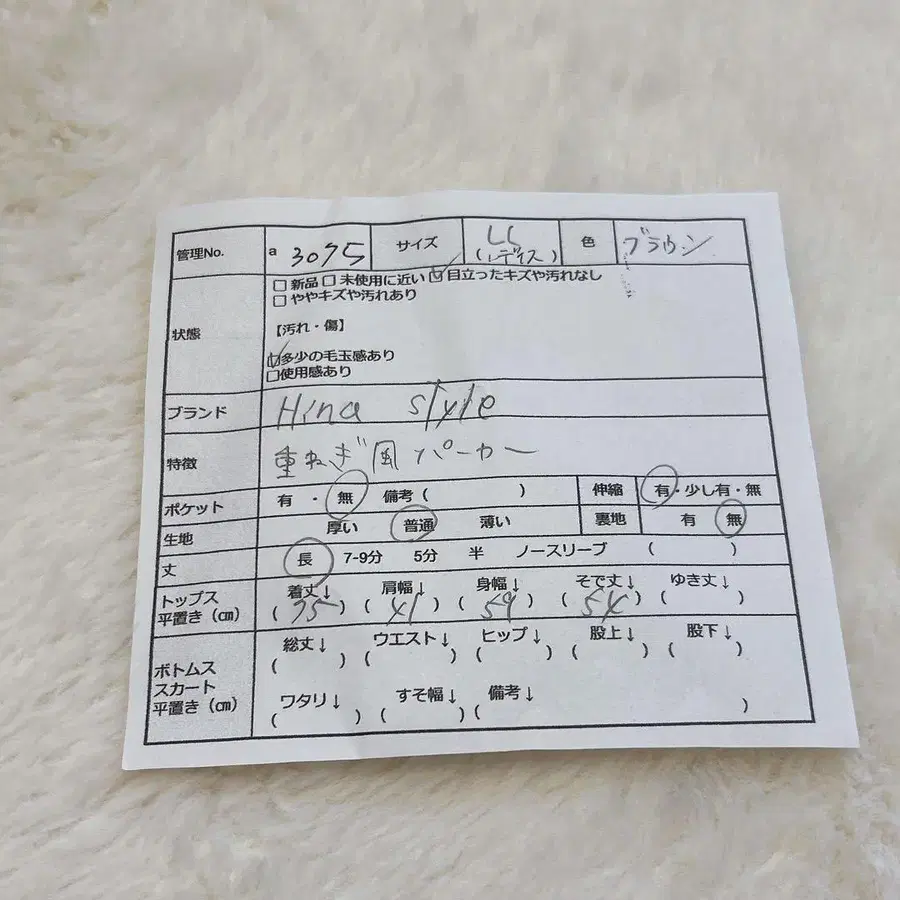 管理No. a 3075 サイズ LL (レディス) 色 ブラウン
□ 新品 □ 未使用に近い ☑ 目立ったキズや汚れなし
□ ややキズや汚れあり
状態
【汚れ・傷】
☑多少の毛玉感あり
□使用感あり
ブランド Hina style
特徴 重ねぎ風パーカー
ポケット 有 ・ 無 備考 ( ) 伸縮 有・少し有・無
生地 厚い 普通 薄い 裏地 有 無
丈 長 7-9分 5分 半 ノースリーブ ( )
トップス 着丈↓ 肩幅↓ 身幅↓ そで丈↓ ゆき丈↓
平置き (㎝) ( 75 ) ( 41 ) ( 59 ) ( 54 ) ( )
総丈↓ ウエスト↓ ヒップ↓ 股上↓ 股下↓
ボトムス ( ) ( ) ( ) ( ) ( )
スカート
平置き (㎝) ワタリ↓ すそ幅↓ 備考↓
( ) ( ) ( )